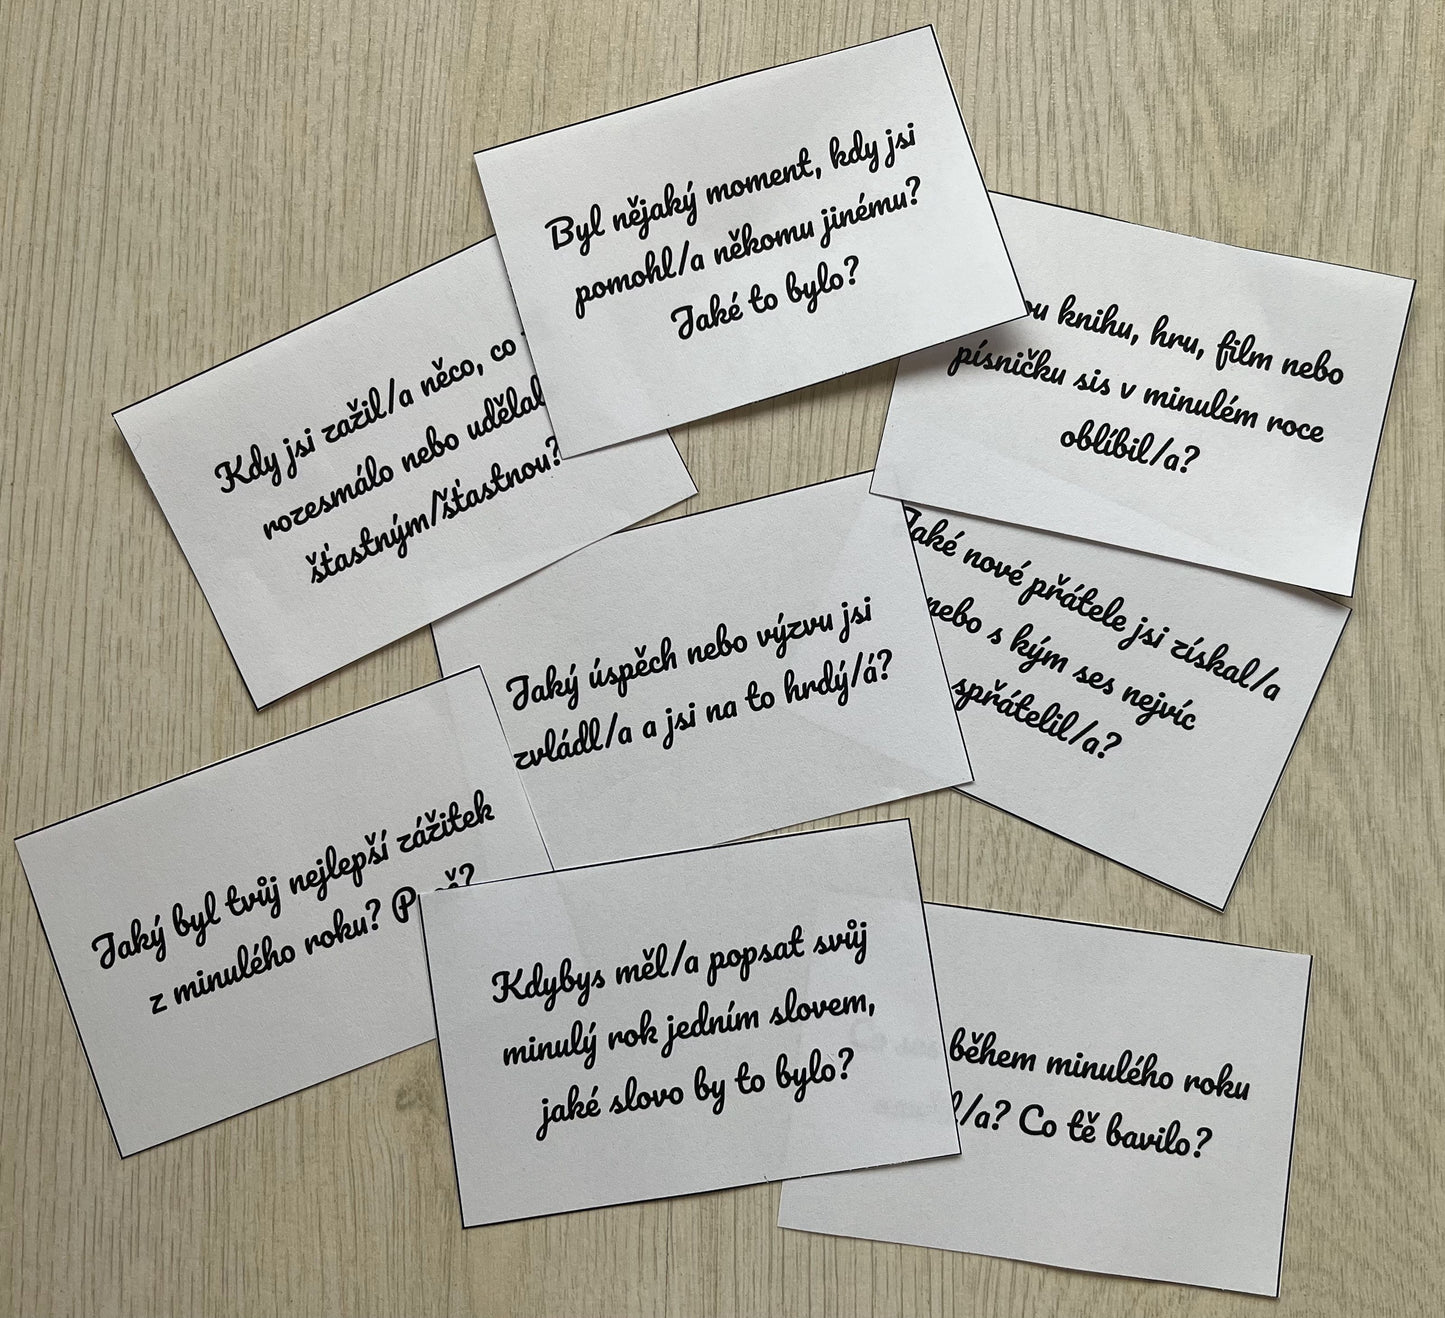 Byl nějaký moment, kdy jsi
pomohl/a někomu jinému?
Jaké to bylo?
Kdy jsi zažil/a něco, co
rozesmálo nebo
šťastným/šťastnou?
knihu, hru, film nebo
písničku sis v minulém roce
oblíbil/a?
Jaké nové přátele jsi získal/a
nebo s kým ses nejvíc
spřátelil/a?
Jaký úspěch nebo výzvu jsi
zvládl/a a jsi na to hrdý/á?
Jaký byl tvůj nejlepší zážitek
z minulého roku?
Kdybys měl/a popsat svůj
minulý rok jedním slovem,
jaké slovo by to bylo?
během minulého roku
Co tě bavilo?